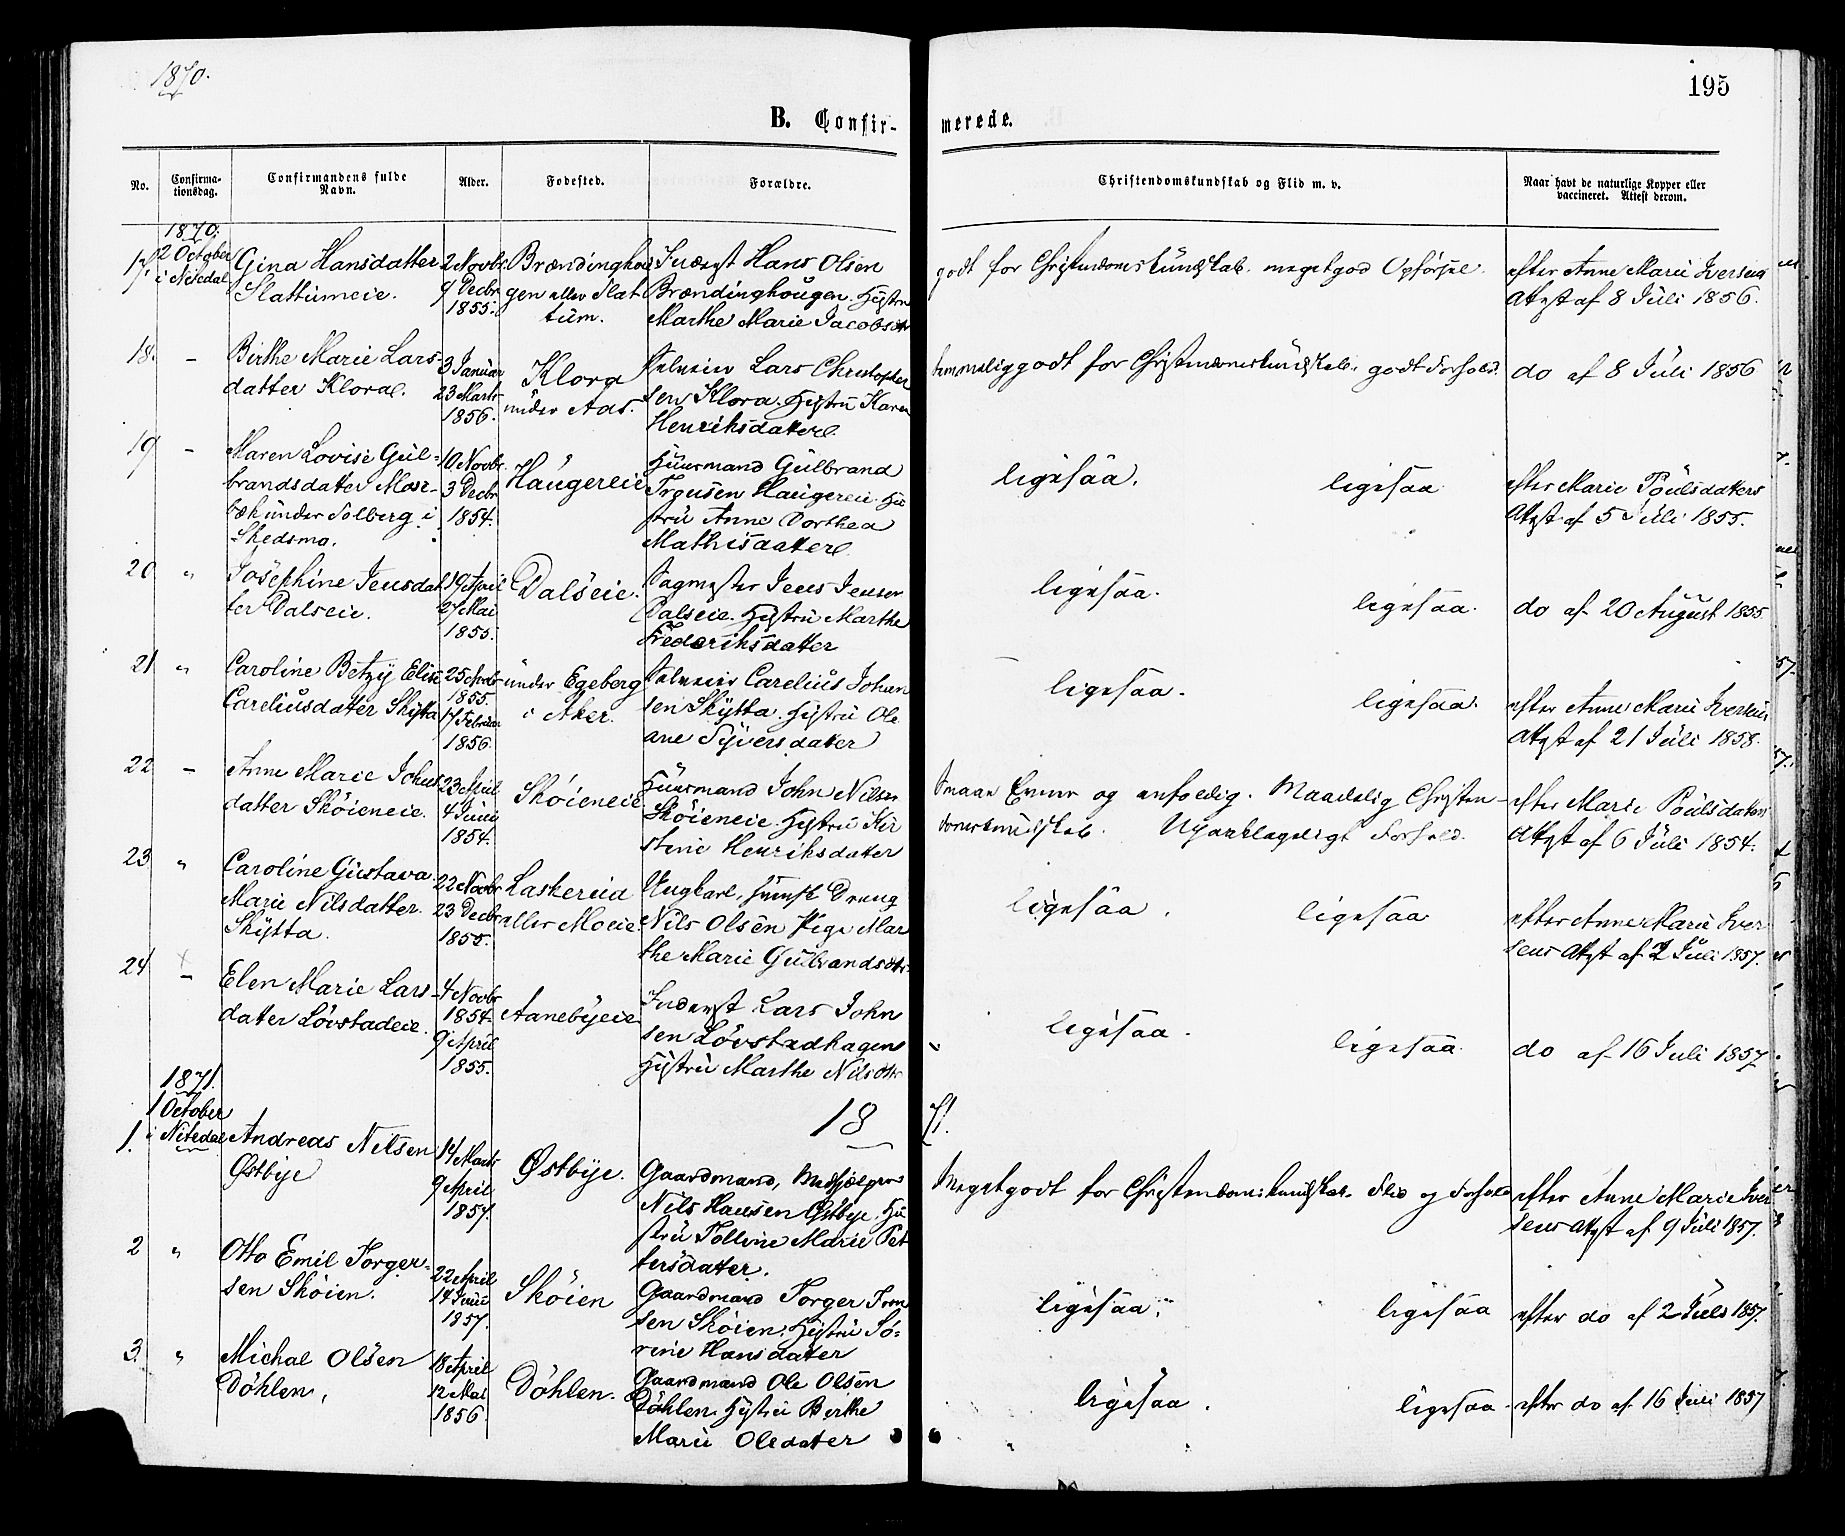 1870.
195
B. Confir-
merede.
No.
Confirma-
tionsdag.
Confirmandens fulde
Navn.
Alder.
Fødested.
Forældre.
Christendomskundskab og Flid m. v.
Naar havt de naturlige Kopper eller
vaccineret. Attest derom.
1870.
17
2 October
i Nitedal
Gina Hansdatter
Slattumeie.
2 Novbr.
9 Decbr
1855.
Brændinghou
gen eller Slat
tum.
Inderst Hans Olsen
Brændinghougen. Hustru
Marthe Marie Jacobsdtr
godt for Christendomskundskab. meget god Opførsel.
efter Anne Marie Iversens
Attest af 8 Juli 1856.
18.
-
Birthe Marie Lars-
datter Klora.
3 Januar
23 Marts
1856.
Klora
under Aas.
Selveier Lars Christopher
sen Klora. Hustru Karen
Henriksdatter
temmelig godt for Christendomskundskab. godt Forhold.
do af 8 Juli 1856
19
-
Maren Lovise Gul-
brandsdatter Mor-
bæk under Solberg i
Skedsmo.
10 Novbr.
3 Decbr
1854.
Haugereie
Huusmand Gulbrand
Haugereie. Hu
stru Anne Dorthea
Mathisdatter
ligesaa.
ligesaa
efter Marie Poulsdatters
Attest af 5 Juli 1855.
20
"
Josephine Jensdat
ter Dalseie.
19 April
27 Mai
1855.
Dalseie.
Sagmester Jens Jensen
Dalseie. Hustru Marthe
Frederiksdatter
ligesaa.
ligesaa.
do af 20 August 1855.
21
"
Caroline Betzy Elise
Careliusdatter Skytta
25 Novbr
1855.
17 Februar
1856.
under Egeberg
i Aker.
Selveier Carelius Johan
sen Skytta. Hustru Ole
ane Syversdatter
ligesaa.
ligesaa.
efter Anne Marie Iversens
Attest af 21 Juli 1858.
22
-
Anne Marie Johns
datter Skøieneie.
23 April
4 Juni
1854.
Skøieneie
Huusmand John Nilsen
Skøieneie. Hustru Kir
stine Henriksdatter
Smaae Evner og enfoldig. Maadelig Christen-
domskundskab. Upaaklageligt Forhold.
efter Marie Poulsdatters
Attest af 6 Juli 1854.
23
"
Caroline Gustava
Marie Nilsdatter
Skytta.
22 Novbr
23 Decbr
1855.
Laskereia
eller Moeie.
Ungkarl, Dreng
Nils Olsen Pige Mar
the Marie Gulbrandsdtr.
ligesaa.
ligesaa
efter Anne Marie Iver
sens Attest af 2 Juli 1857.
24
-
Elen Marie Lars-
datter Løvstadeie.
4 Novbr
1854.
9 April
1855.
Aanebyeie
Inderst Lars John
sen Løvstadhagen
Hustru Marthe Nilsdtr
ligesaa.
ligesaa.
do af 16 Juli 1857
18
71.
1871.
1 October
i Nitedal
1.
Andreas Nilsen
Østbye
14 Marts
9 April
1857.
Østbye.
Gaardmand, Medhjælper
Nils Hansen Østbye. Hu
stru Tolline Marie Pet
tersdatter.
Meget godt for Christendomskundskab. Flid og Forhold
efter Anne Marie Iver
sens Attest af 9 Juli 1857.
2
"
Otto Emil Torger-
sen Skøien.
22 April
14 Juni
1857.
Skøien
Gaardmand Torger Iver
sen Skøien. Hustru Sø-
rine Hansdatter
ligesaa.
ligesaa
efter do af 2 Juli 1857.
3.
"
Michal Olsen
Døhlen.
18 April
12 Mai
1856.
Døhlen.
Gaardmand Ole Olsen
Døhlen. Hustru Berthe
Marie Olsdatter
ligesaa.
ligesaa.
efter do af 16 Juli 1857